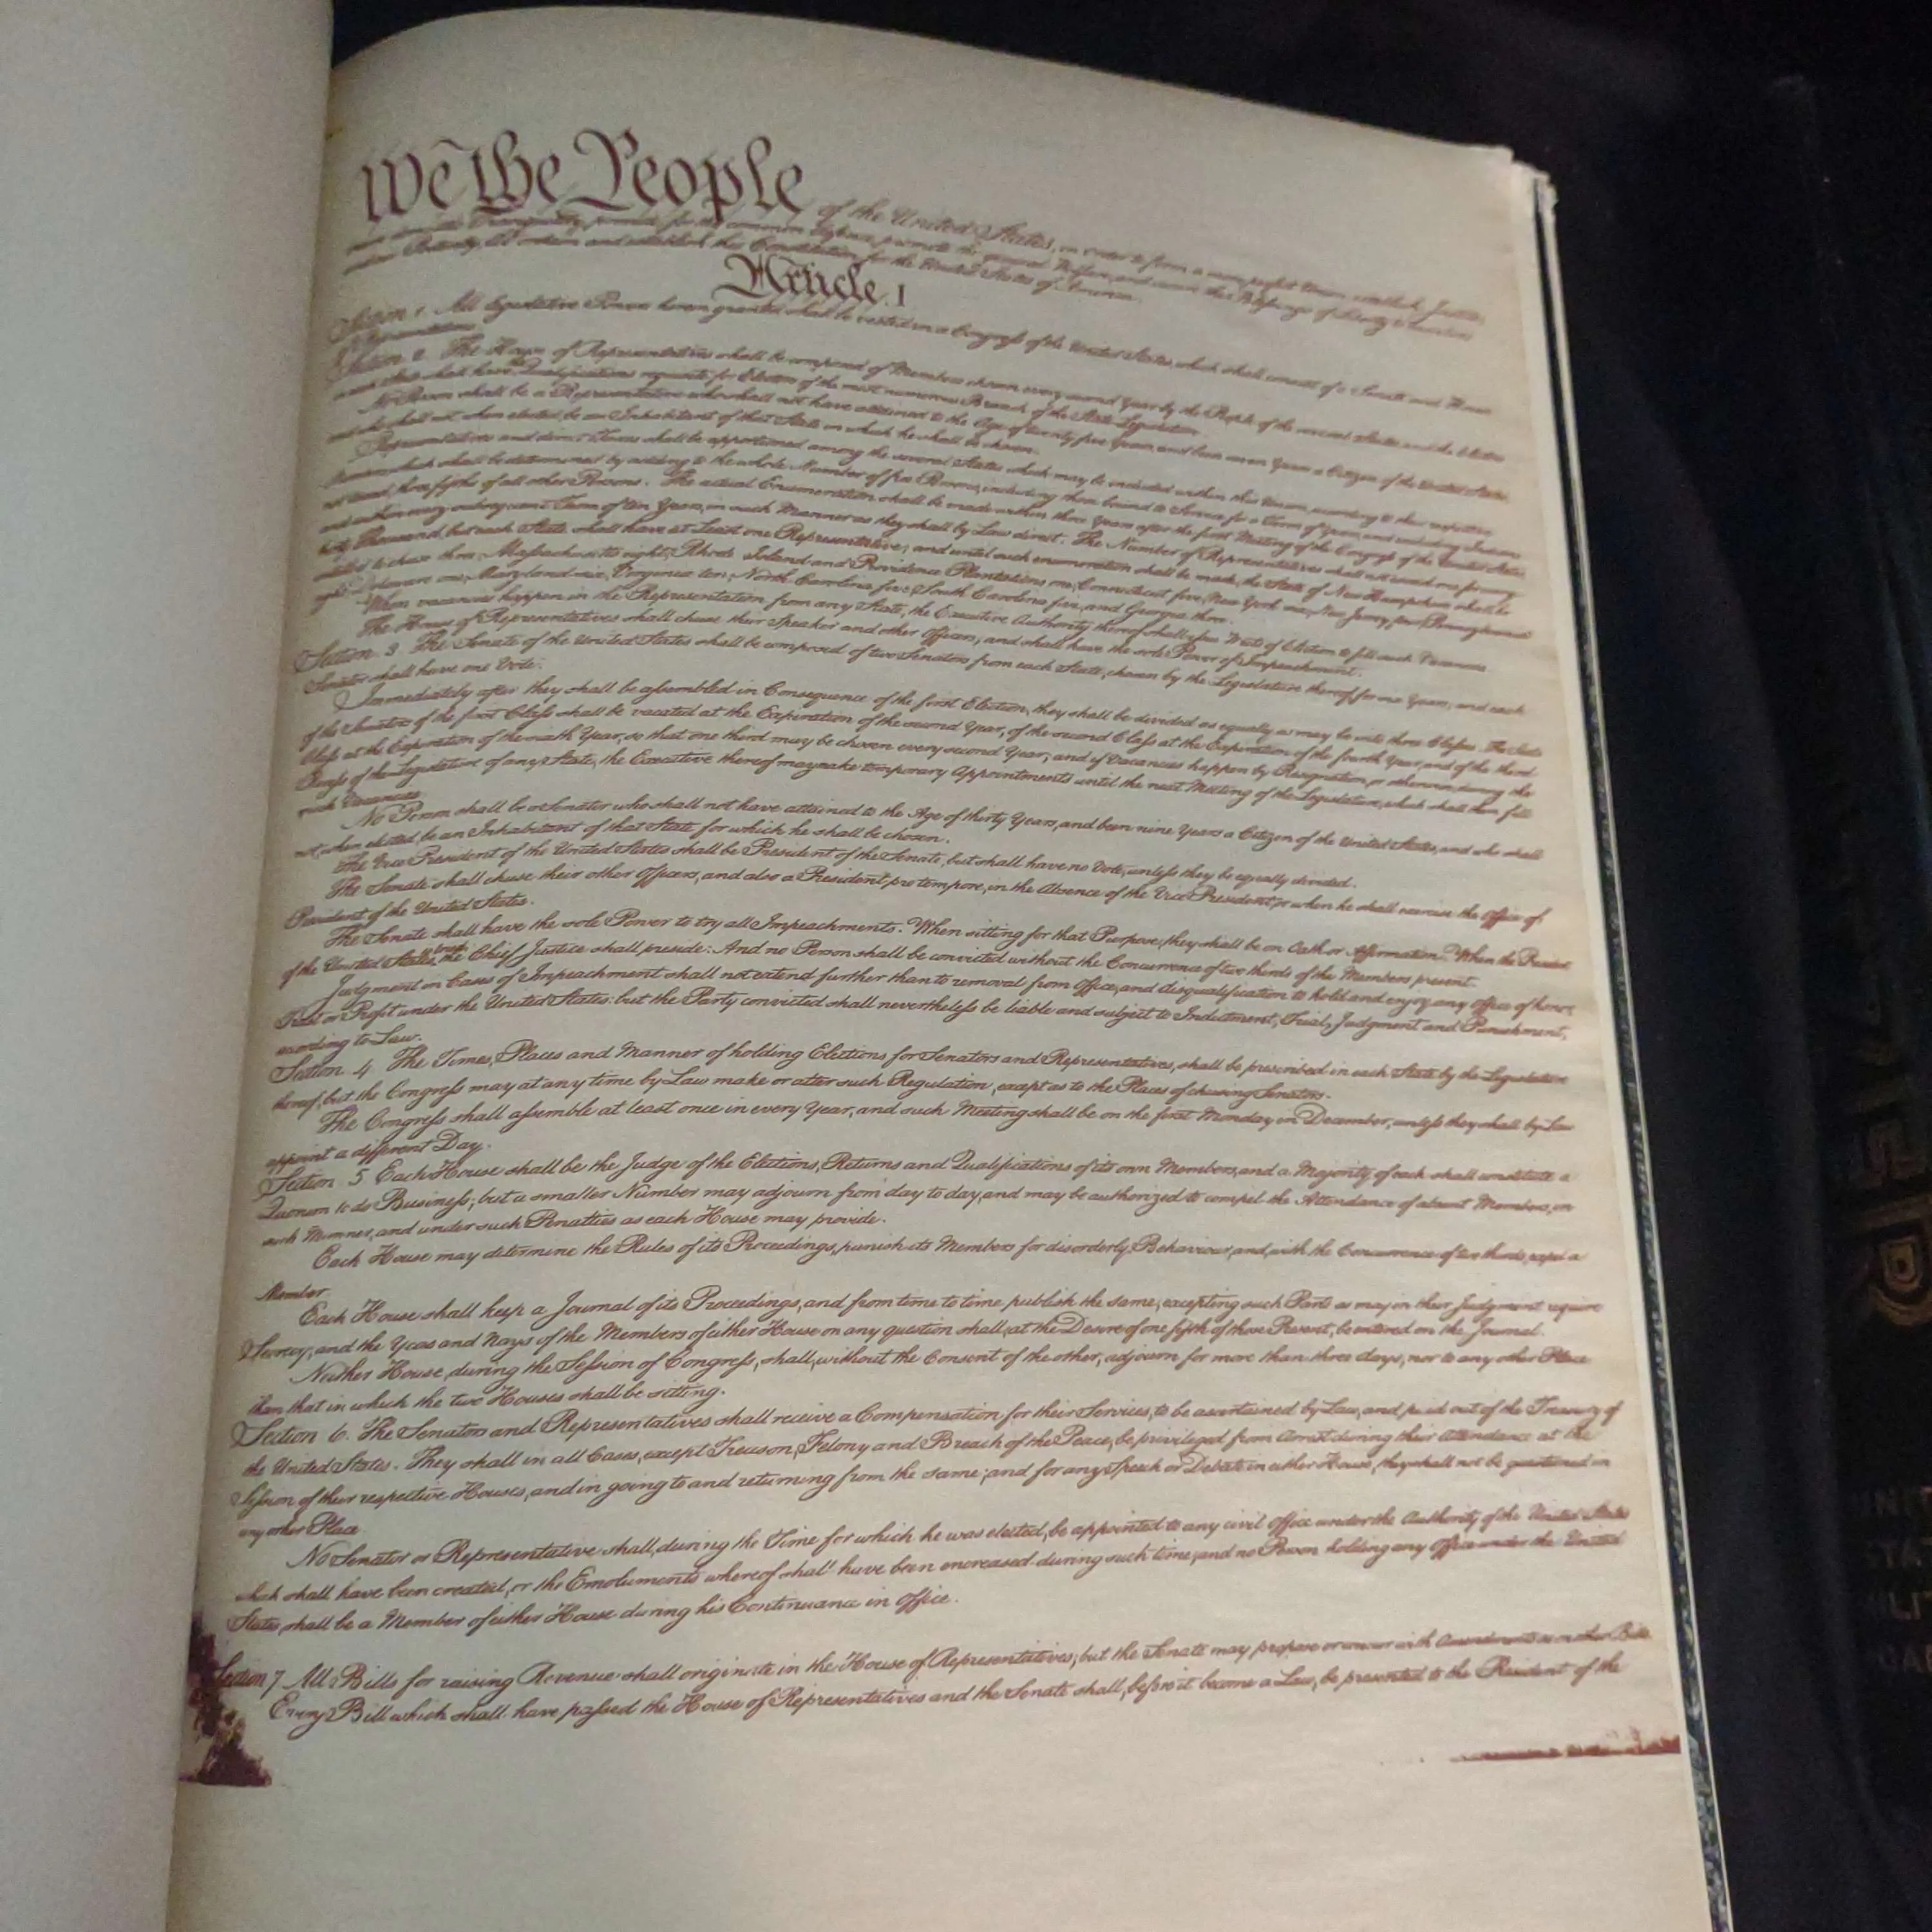 We the People of the United States, in order to form a more perfect Union, establish Justice,
insure domestic Tranquility, provide for the common defence, promote the general Welfare, and secure the Blessings of Liberty to ourselves
and our Posterity, do ordain and establish this Constitution for the United States of America.
Article I
Section 1. All legislative Powers herein granted shall be vested in a Congress of the United States, which shall consist of a Senate and House
of Representatives.
Section 2. The House of Representatives shall be composed of Members chosen every second Year by the People of the several States and the Electors
in each State shall have the Qualifications requisite for Electors of the most numerous Branch of the State Legislature.
No Person shall be a Representative who shall not have attained to the Age of twenty five Years, and been seven Years a Citizen of the United States,
and who shall not, when elected, be an Inhabitant of that State in which he shall be chosen.
Representatives and direct Taxes shall be apportioned among the several States which may be included within this Union, according to their respective
Numbers, which shall be determined by adding to the whole Number of free Persons, including those bound to Service for a Term of Years, and excluding Indians
not taxed, three fifths of all other Persons. The actual Enumeration shall be made within three Years after the first Meeting of the Congress of the United States,
and within every subsequent Term of ten Years, in such Manner as they shall by Law direct. The Number of Representatives shall not exceed one for every
thirty Thousand, but each State shall have at Least one Representative; and until such enumeration shall be made, the State of New Hampshire shall be
entitled to chuse three, Massachusetts eight, Rhode Island and Providence Plantations one, Connecticut five, New York six, New Jersey four, Pennsylvania
eight, Delaware one, Maryland six, Virginia ten, North Carolina five, South Carolina five, and Georgia three.
When vacancies happen in the Representation from any State, the Executive Authority thereof shall issue Writs of Election to fill such Vacancies.
The House of Representatives shall chuse their Speaker and other Officers; and shall have the sole Power of Impeachment.
Section 3. The Senate of the United States shall be composed of two Senators from each State, chosen by the Legislature thereof, for six Years; and each
Senator shall have one Vote.
Immediately after they shall be assembled in Consequence of the first Election, they shall be divided as equally as may be into three Classes. The Seats
of the Senators of the first Class shall be vacated at the Expiration of the second Year, of the second Class at the Expiration of the fourth Year, and of the third
Class at the Expiration of the sixth Year, so that one third may be chosen every second Year; and if Vacancies happen by Resignation, or otherwise, during the
Recess of the Legislature of any State, the Executive thereof may make temporary Appointments until the next Meeting of the Legislature, which shall then fill
such Vacancies.
No Person shall be a Senator who shall not have attained to the Age of thirty Years, and been nine Years a Citizen of the United States, and who shall
not, when elected, be an Inhabitant of that State for which he shall be chosen.
The Vice President of the United States shall be President of the Senate, but shall have no Vote, unless they be equally divided.
The Senate shall chuse their other Officers, and also a President pro tempore, in the Absence of the Vice President, or when he shall exercise the Office of
President of the United States.
The Senate shall have the sole Power to try all Impeachments. When sitting for that Purpose, they shall be on Oath or Affirmation. When the President
of the United States is tried, the Chief Justice shall preside: And no Person shall be convicted without the Concurrence of two thirds of the Members present.
Judgment in Cases of Impeachment shall not extend further than to removal from Office, and disqualification to hold and enjoy any Office of honor,
Trust or Profit under the United States: but the Party convicted shall nevertheless be liable and subject to Indictment, Trial, Judgment and Punishment,
according to Law.
Section 4. The Times, Places and Manner of holding Elections for Senators and Representatives, shall be prescribed in each State by the Legislature
thereof; but the Congress may at any time by Law make or alter such Regulation, except as to the Places of chusing Senators.
The Congress shall assemble at least once in every Year, and such Meeting shall be on the first Monday in December, unless they shall by Law
appoint a different Day.
Section 5 Each House shall be the Judge of the Elections, Returns and Qualifications of its own Members, and a Majority of each shall constitute a
Quorum to do Business; but a smaller Number may adjourn from day to day, and may be authorized to compel the Attendance of absent Members, in
such Manner, and under such Penalties as each House may provide.
Each House may determine the Rules of its Proceedings, punish its Members for disorderly Behaviour, and, with the Concurrence of two thirds, expel a
Member
Each House shall keep a Journal of its Proceedings, and from time to time publish the same, excepting such Parts as may in their Judgment require
Secrecy; and the Yeas and Nays of the Members of either House on any question shall, at the Desire of one fifth of those Present, be entered on the Journal.
Neither House, during the Session of Congress, shall, without the Consent of the other, adjourn for more than three days, nor to any other Place
than that in which the two Houses shall be sitting.
Section 6. The Senators and Representatives shall receive a Compensation for their Services, to be ascertained by Law, and paid out of the Treasury of
the United States. They shall in all Cases, except Treason, Felony and Breach of the Peace, be privileged from Arrest during their Attendance at the
Session of their respective Houses, and in going to and returning from the same; and for any Speech or Debate in either House, they shall not be questioned in
any other Place
No Senator or Representative shall, during the Time for which he was elected, be appointed to any civil Office under the Authority of the United States
which shall have been created, or the Emoluments whereof shall have been encreased during such time; and no Person holding any Office under the United
States, shall be a Member of either House during his Continuance in Office.
Section 7 All Bills for raising Revenue shall originate in the House of Representatives; but the Senate may propose or concur with Amendments as on other Bills
Every Bill which shall have passed the House of Representatives and the Senate shall, before it become a Law, be presented to the President of the